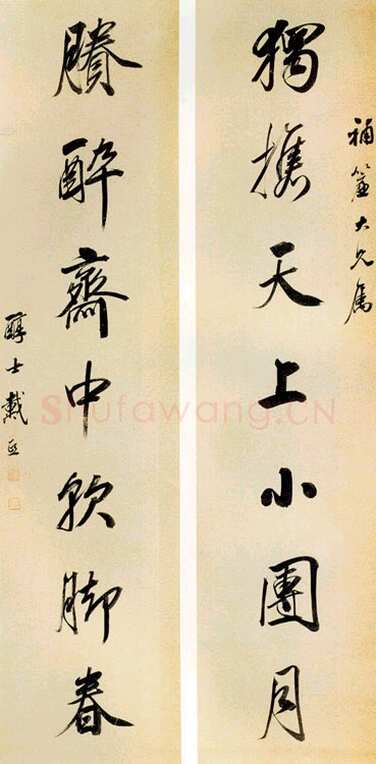 補大兄屬
獨攜天上小團月
賸醉齋中軟脚春
醇士戴熙
Shufawang.CN